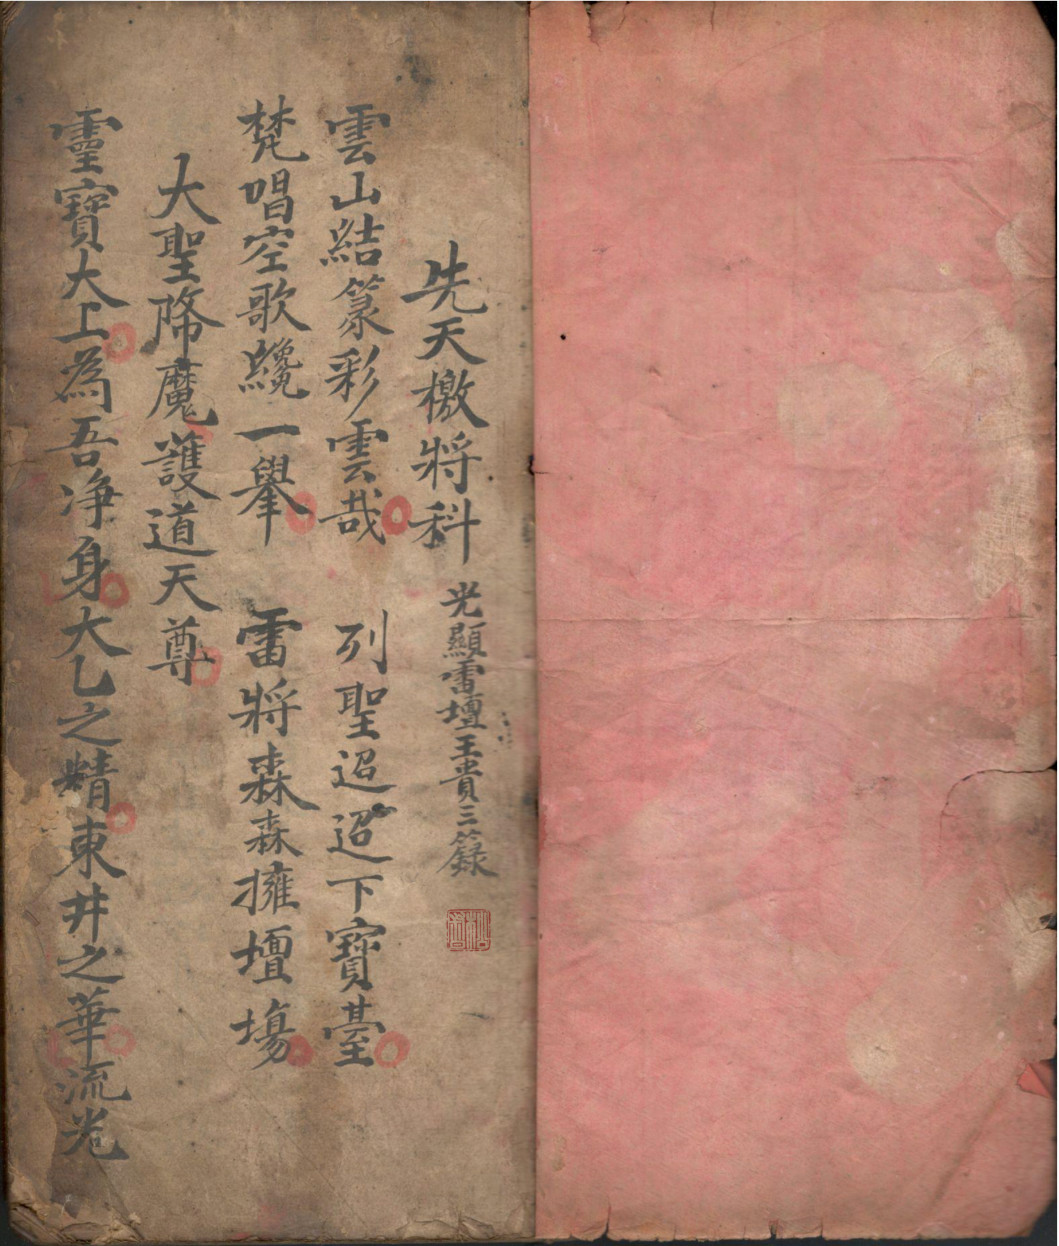 先天檄將科 光顯雷壇王貴三籙
雲山結篆彩雲哉 列聖迢迢下寶臺
梵唱空歌纔一舉 雷將森森擁壇場
大聖降魔護道天尊
靈寶大上為吾净身大乙之精東井之華流光